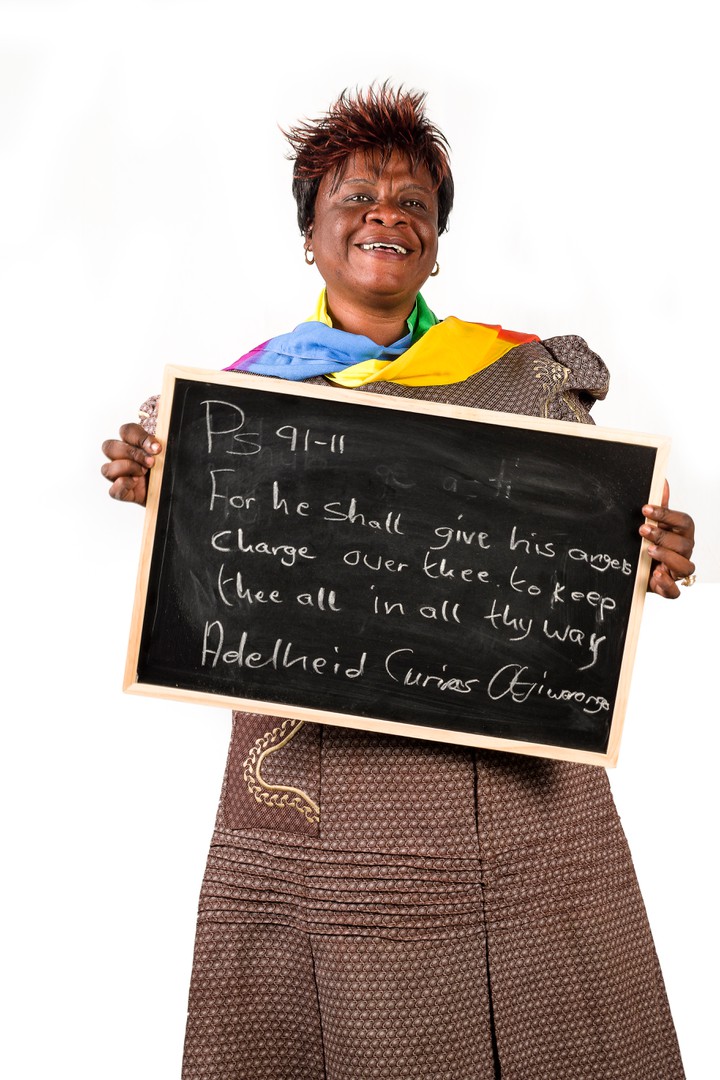 Ps 91-11
For he shall give his angels
charge over thee. to keep
thee all in all thy way
Adelheid Otjiwarongo